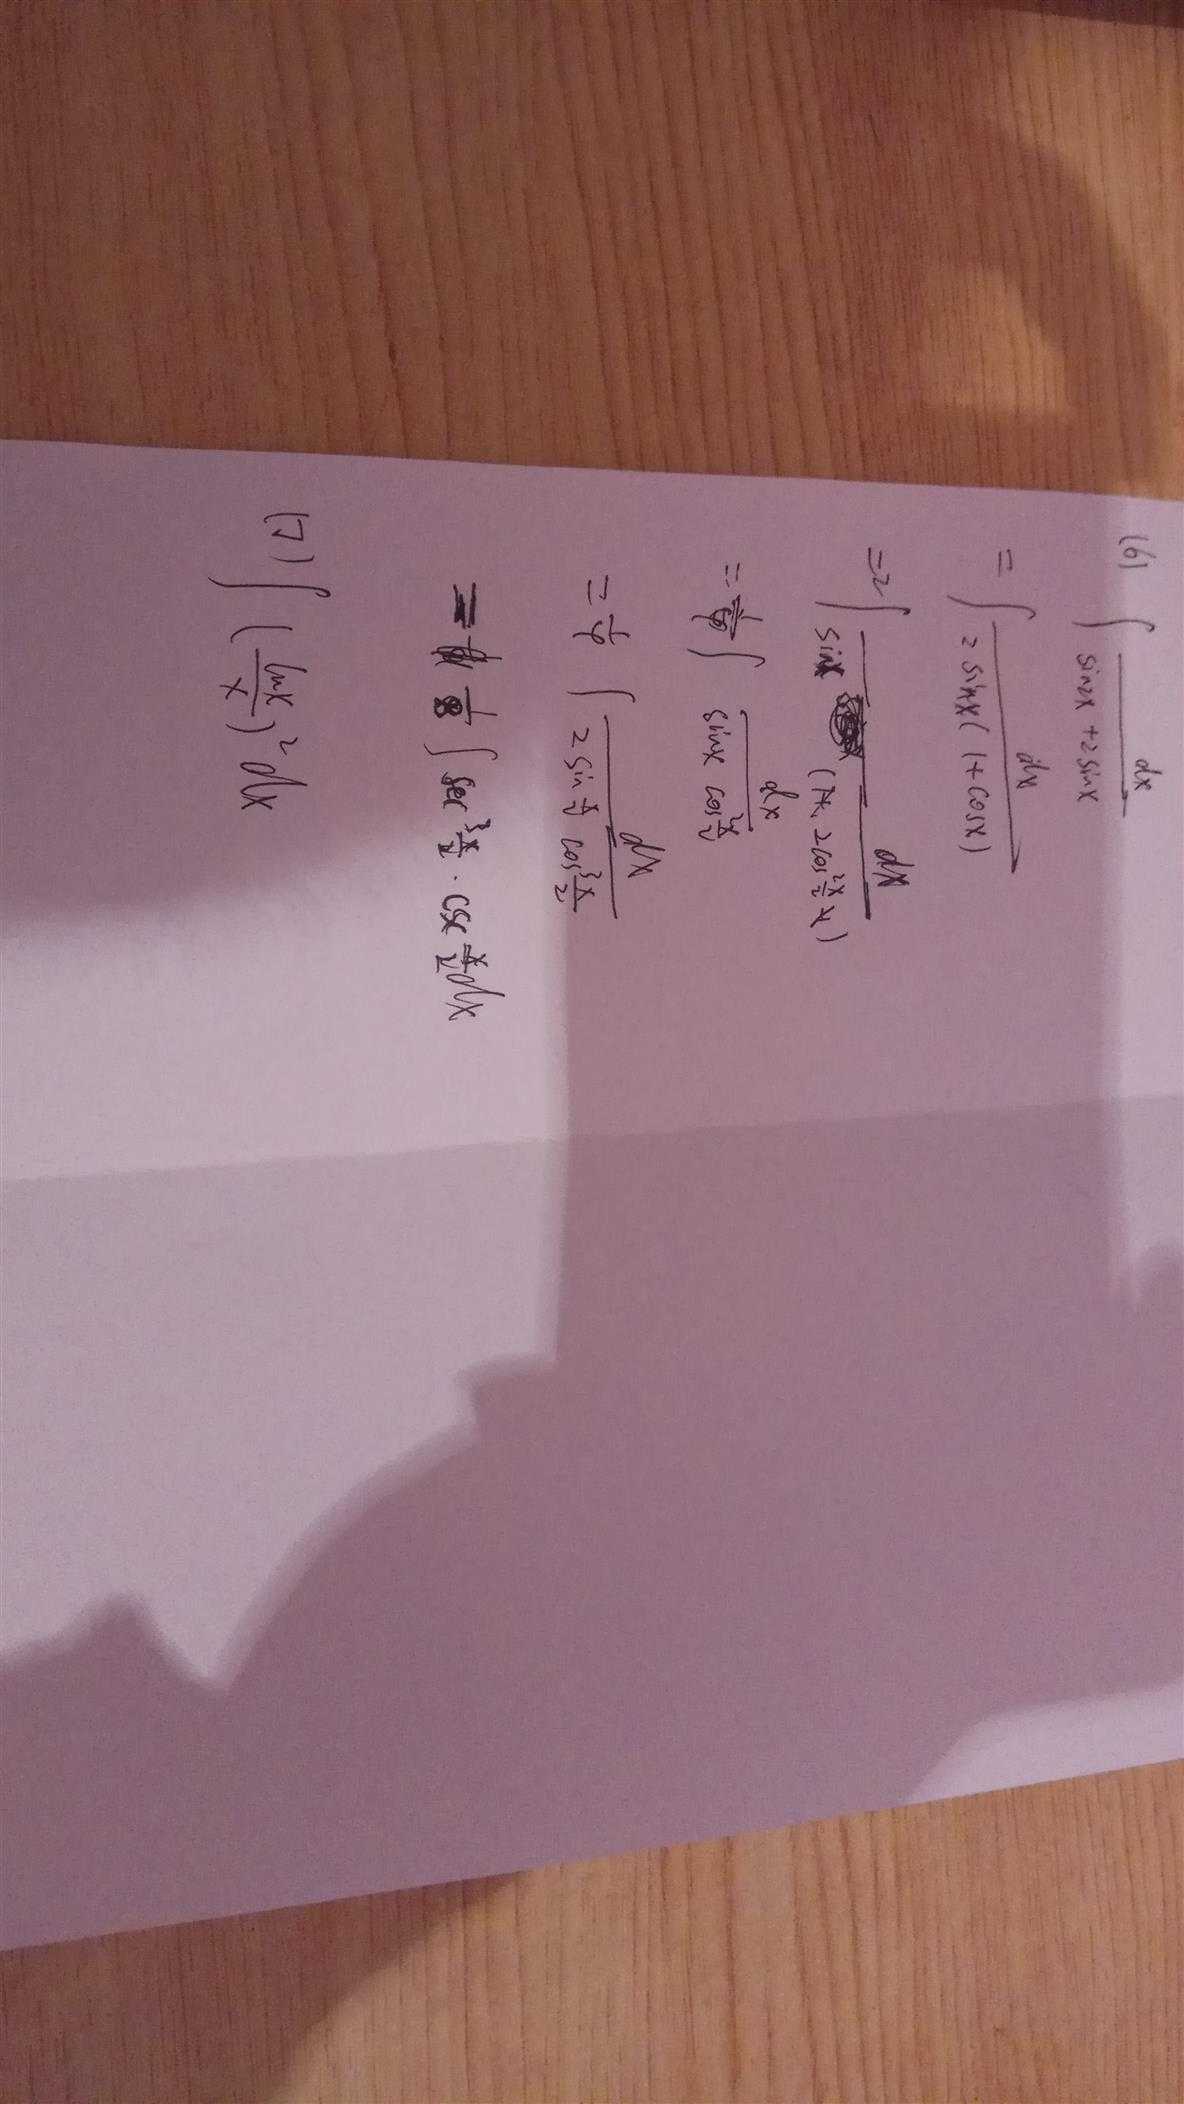 (6) ∫ dx / (sin2x + 2sinx)
= ∫ dx / (2 sinx (1 + cosx))
= 2 ∫ dx / (sinx ( 2cos² x/2 ))
= 1/4 ∫ dx / (sinx cos² x/2)
= 1/4 ∫ dx / (2 sin x/2 cos³ x/2)
= 1/8 ∫ sec³ x/2 · csc x/2 dx
(7) ∫ (lnx / x)² dx